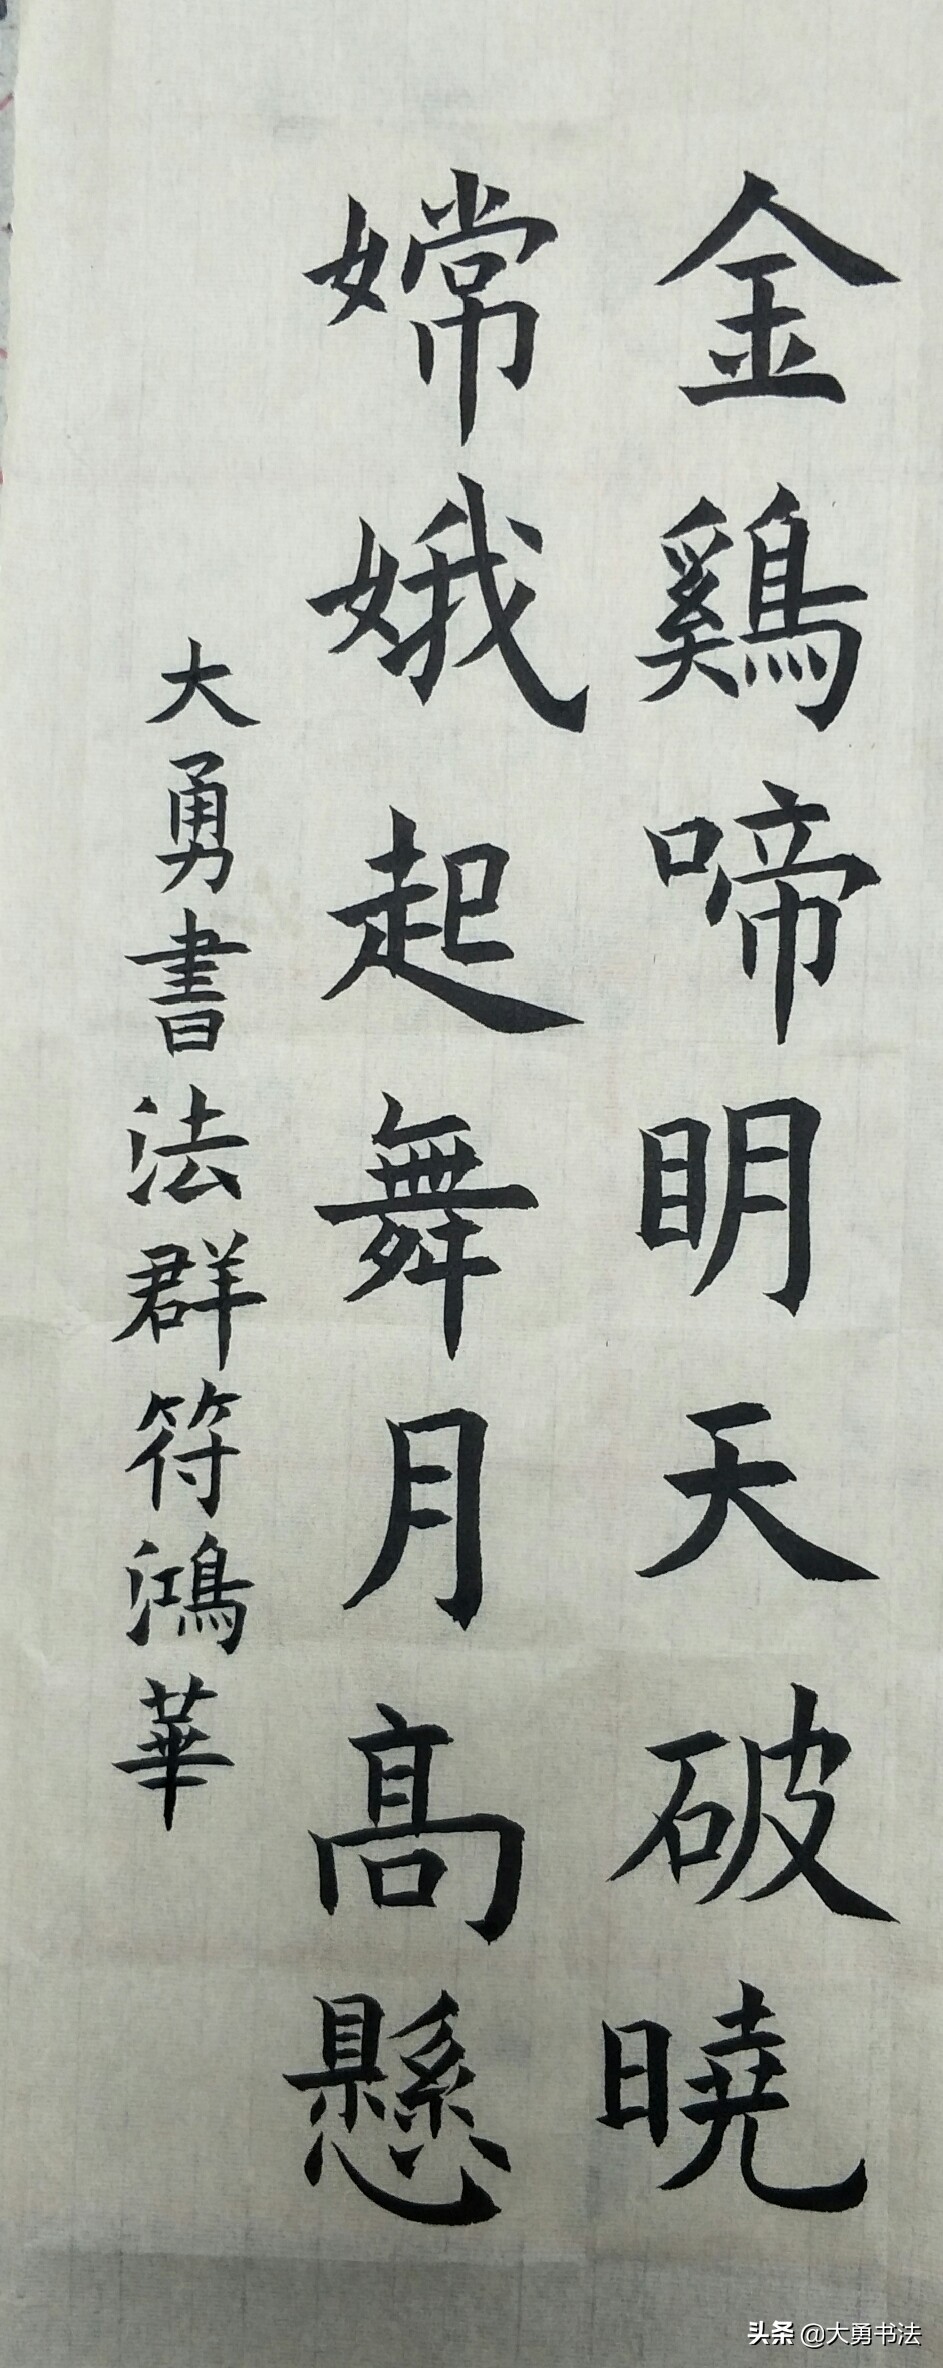 金鷄啼明天破曉
嫦娥起舞月高懸
大勇書法群符鴻華
头条 @大勇书法